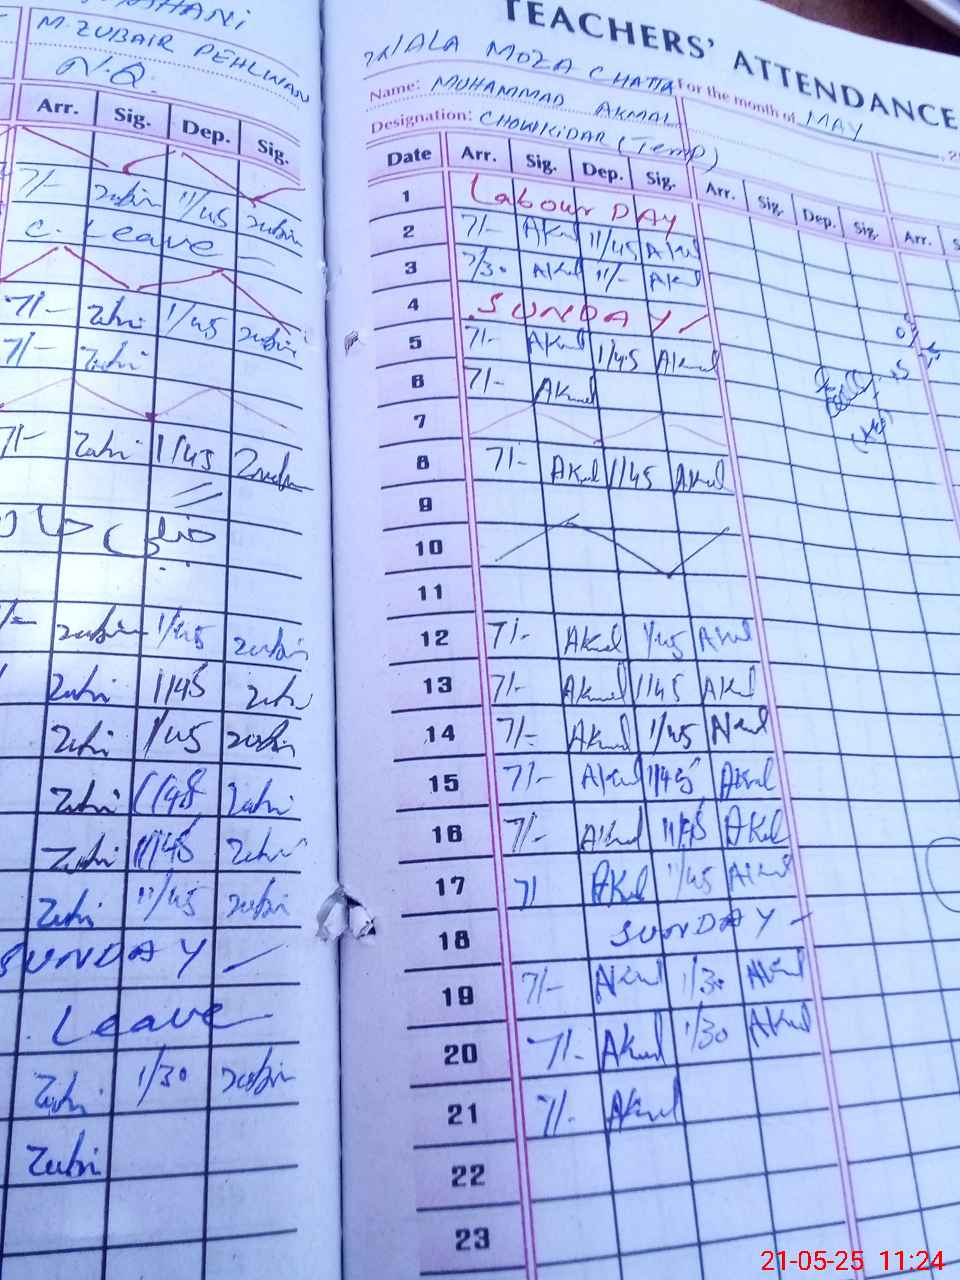 M. ZUBAIR PEHLWAN
N.Q.
Arr. Sig. Dep. Sig.
7/- Zubin 11/45 Zubin
C. Leave
7/- Zubi 1/45 Zubin
7/- Zubi
7/- Zubi 1/45 Zubin
Zubin 1/45 Zubin
Zubi 1/45 Zubi
Zubi 1/45 Zubin
Zubi 1/45 Zubi
Zubi 11/45 Zubi
Zubi 11/45 Zubin
SUNDAY
Leave
Zubi 1/30 Zubin
Zubi
TEACHERS' ATTENDANCE
MOZA CHATTA
For the month of MAY
Name: MUHAMMAD AKMAL
Designation: CHOWKIDAR (Temp)
Date Arr. Sig. Dep. Sig. Arr. Sig. Dep. Sig. Arr.
1 Labour DAY
2 7/- Akml 11/45 Akml
3 7/30 Akml 11/- Akml
4 SUNDAY
5 7/- Akml 1/45 Akml
6 7/- Akml
7
8 7/- Akml 1/45 Akml
9
10
11
12 7/- Akml 1/45 Akml
13 7/- Akml 1/45 Akml
14 7/- Akml 1/45 Akml
15 7/- Akml 1/45 Akml
16 7/- Akml 11/45 Akml
17 7/ Akml 11/45 Akml
18 SUNDAY
19 7/- Akml 1/30 Akml
20 7/- Akml 1/30 Akml
21 7/- Akml
22
23
21-05-25 11:24